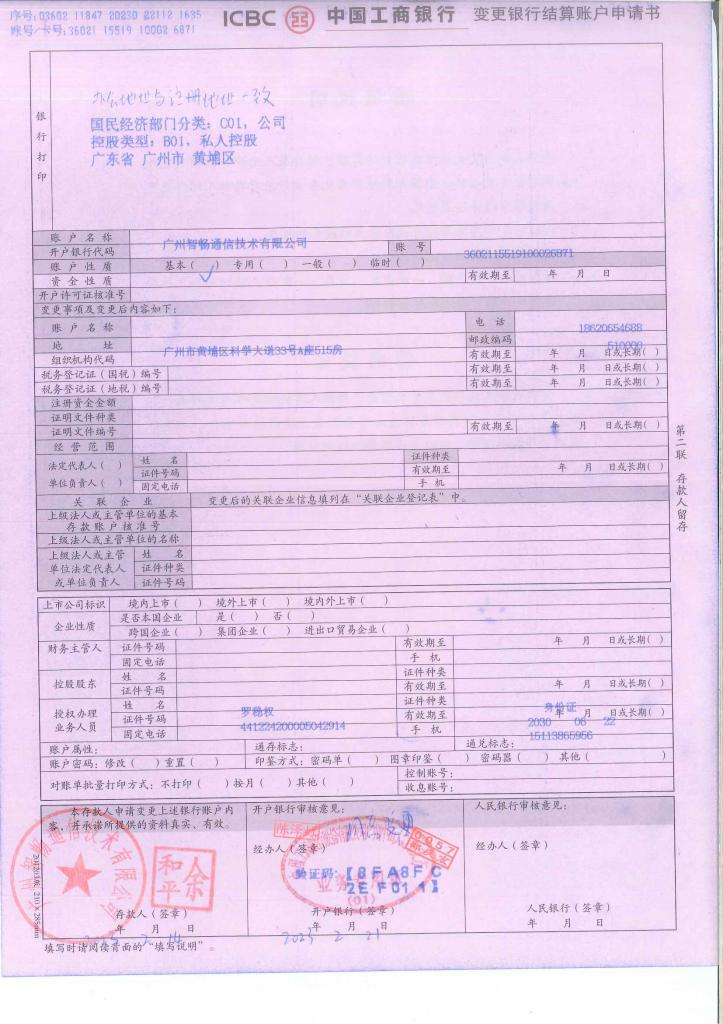 序号: 03602 11847 20230 22112 1635
账号/卡号: 36021 15519 10002 6871
ICBC 中国工商银行 变更银行结算账户申请书
银行打印
办公地址与注册地址一致
国民经济部门分类: C01, 公司
控股类型: B01, 私人控股
广东省 广州市 黄埔区
账户名称 广州智畅通信技术有限公司
开户银行代码 账号 3602115519100026871
账户性质 基本（✓） 专用（ ） 一般（ ） 临时（ ）
资金性质 有效期至 年 月 日
开户许可证核准号
变更事项及变更后内容如下:
账户名称 电话 18620654688
地址 广州市黄埔区科学大道33号A座515房 邮政编码 510000
组织机构代码 有效期至 年 月 日或长期( )
税务登记证（国税）编号 有效期至 年 月 日或长期( )
税务登记证（地税）编号 有效期至 年 月 日或长期( )
注册资金金额
证明文件种类
证明文件编号 有效期至 年 月 日或长期( )
经营范围
法定代表人（ ） 姓名 证件种类
单位负责人（ ） 证件号码 有效期至 年 月 日或长期( )
固定电话 手机
关联企业 变更后的关联企业信息填列在“关联企业登记表”中。
上级法人或主管单位的基本存款账户核准号
上级法人或主管单位的名称
上级法人或主管单位法定代表人或单位负责人 姓名
证件种类
证件号码
第二联 存款人留存
上市公司标识 境内上市（ ） 境外上市（ ） 境内外上市（ ）
企业性质 是否本国企业 是（ ） 否（ ）
跨国企业（ ） 集团企业（ ） 进出口贸易企业（ ）
财务主管人 证件号码 有效期至 年 月 日或长期( )
固定电话 手机
控股股东 姓名 证件种类
证件号码 有效期至 年 月 日或长期( )
授权办理业务人员 姓名 罗稳权 证件种类 身份证
证件号码 441224200005042914 有效期至 2030 年 06 月 22 日或长期( )
固定电话 手机 15113865956
账户属性: 通存标志: 通兑标志:
账户密码: 修改（ ）重置（ ） 印鉴方式: 密码单（ ） 图章印鉴（ ） 密码器（ ） 其他（ ）
对账单批量打印方式: 不打印（ ）按月（ ）其他（ ） 控制账号:
收息账号:
本存款人申请变更上述银行账户内容，并承诺所提供的资料真实、有效。
存款人（签章）
年 月 日
广州智畅通信技术有限公司
余和平
开户银行审核意见:
经办人（签章）
验证码:【8FA8FC
2EF011】
(01)
开户银行（签章）
年 月 日
2023 2 21
人民银行审核意见:
经办人（签章）
人民银行（签章）
年 月 日
填写时请阅读背面的“填写说明”。